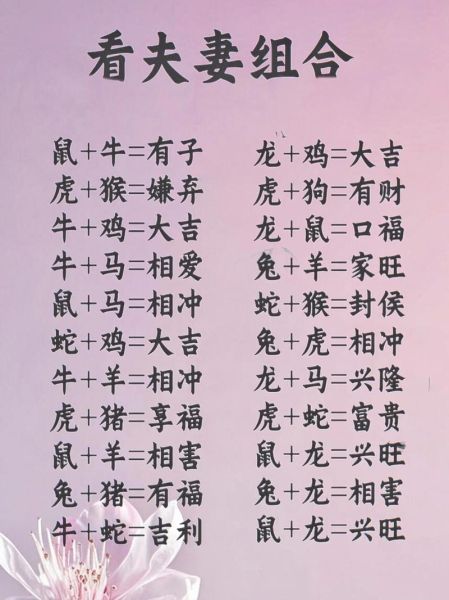 看夫妻组合
鼠+牛=有子
虎+猴=嫌弃
牛+鸡=大吉
牛+马=相爱
鼠+马=相冲
蛇+鸡=大吉
牛+羊=相冲
虎+猪=享福
鼠+羊=相害
兔+猪=有福
牛+蛇=吉利
龙+鸡=大吉
虎+狗=有财
龙+鼠=口福
兔+羊=家旺
蛇+猴=封侯
兔+虎=相冲
龙+马=兴隆
虎+蛇=富贵
鼠+龙=兴旺
兔+龙=相害
鼠+龙=兴旺